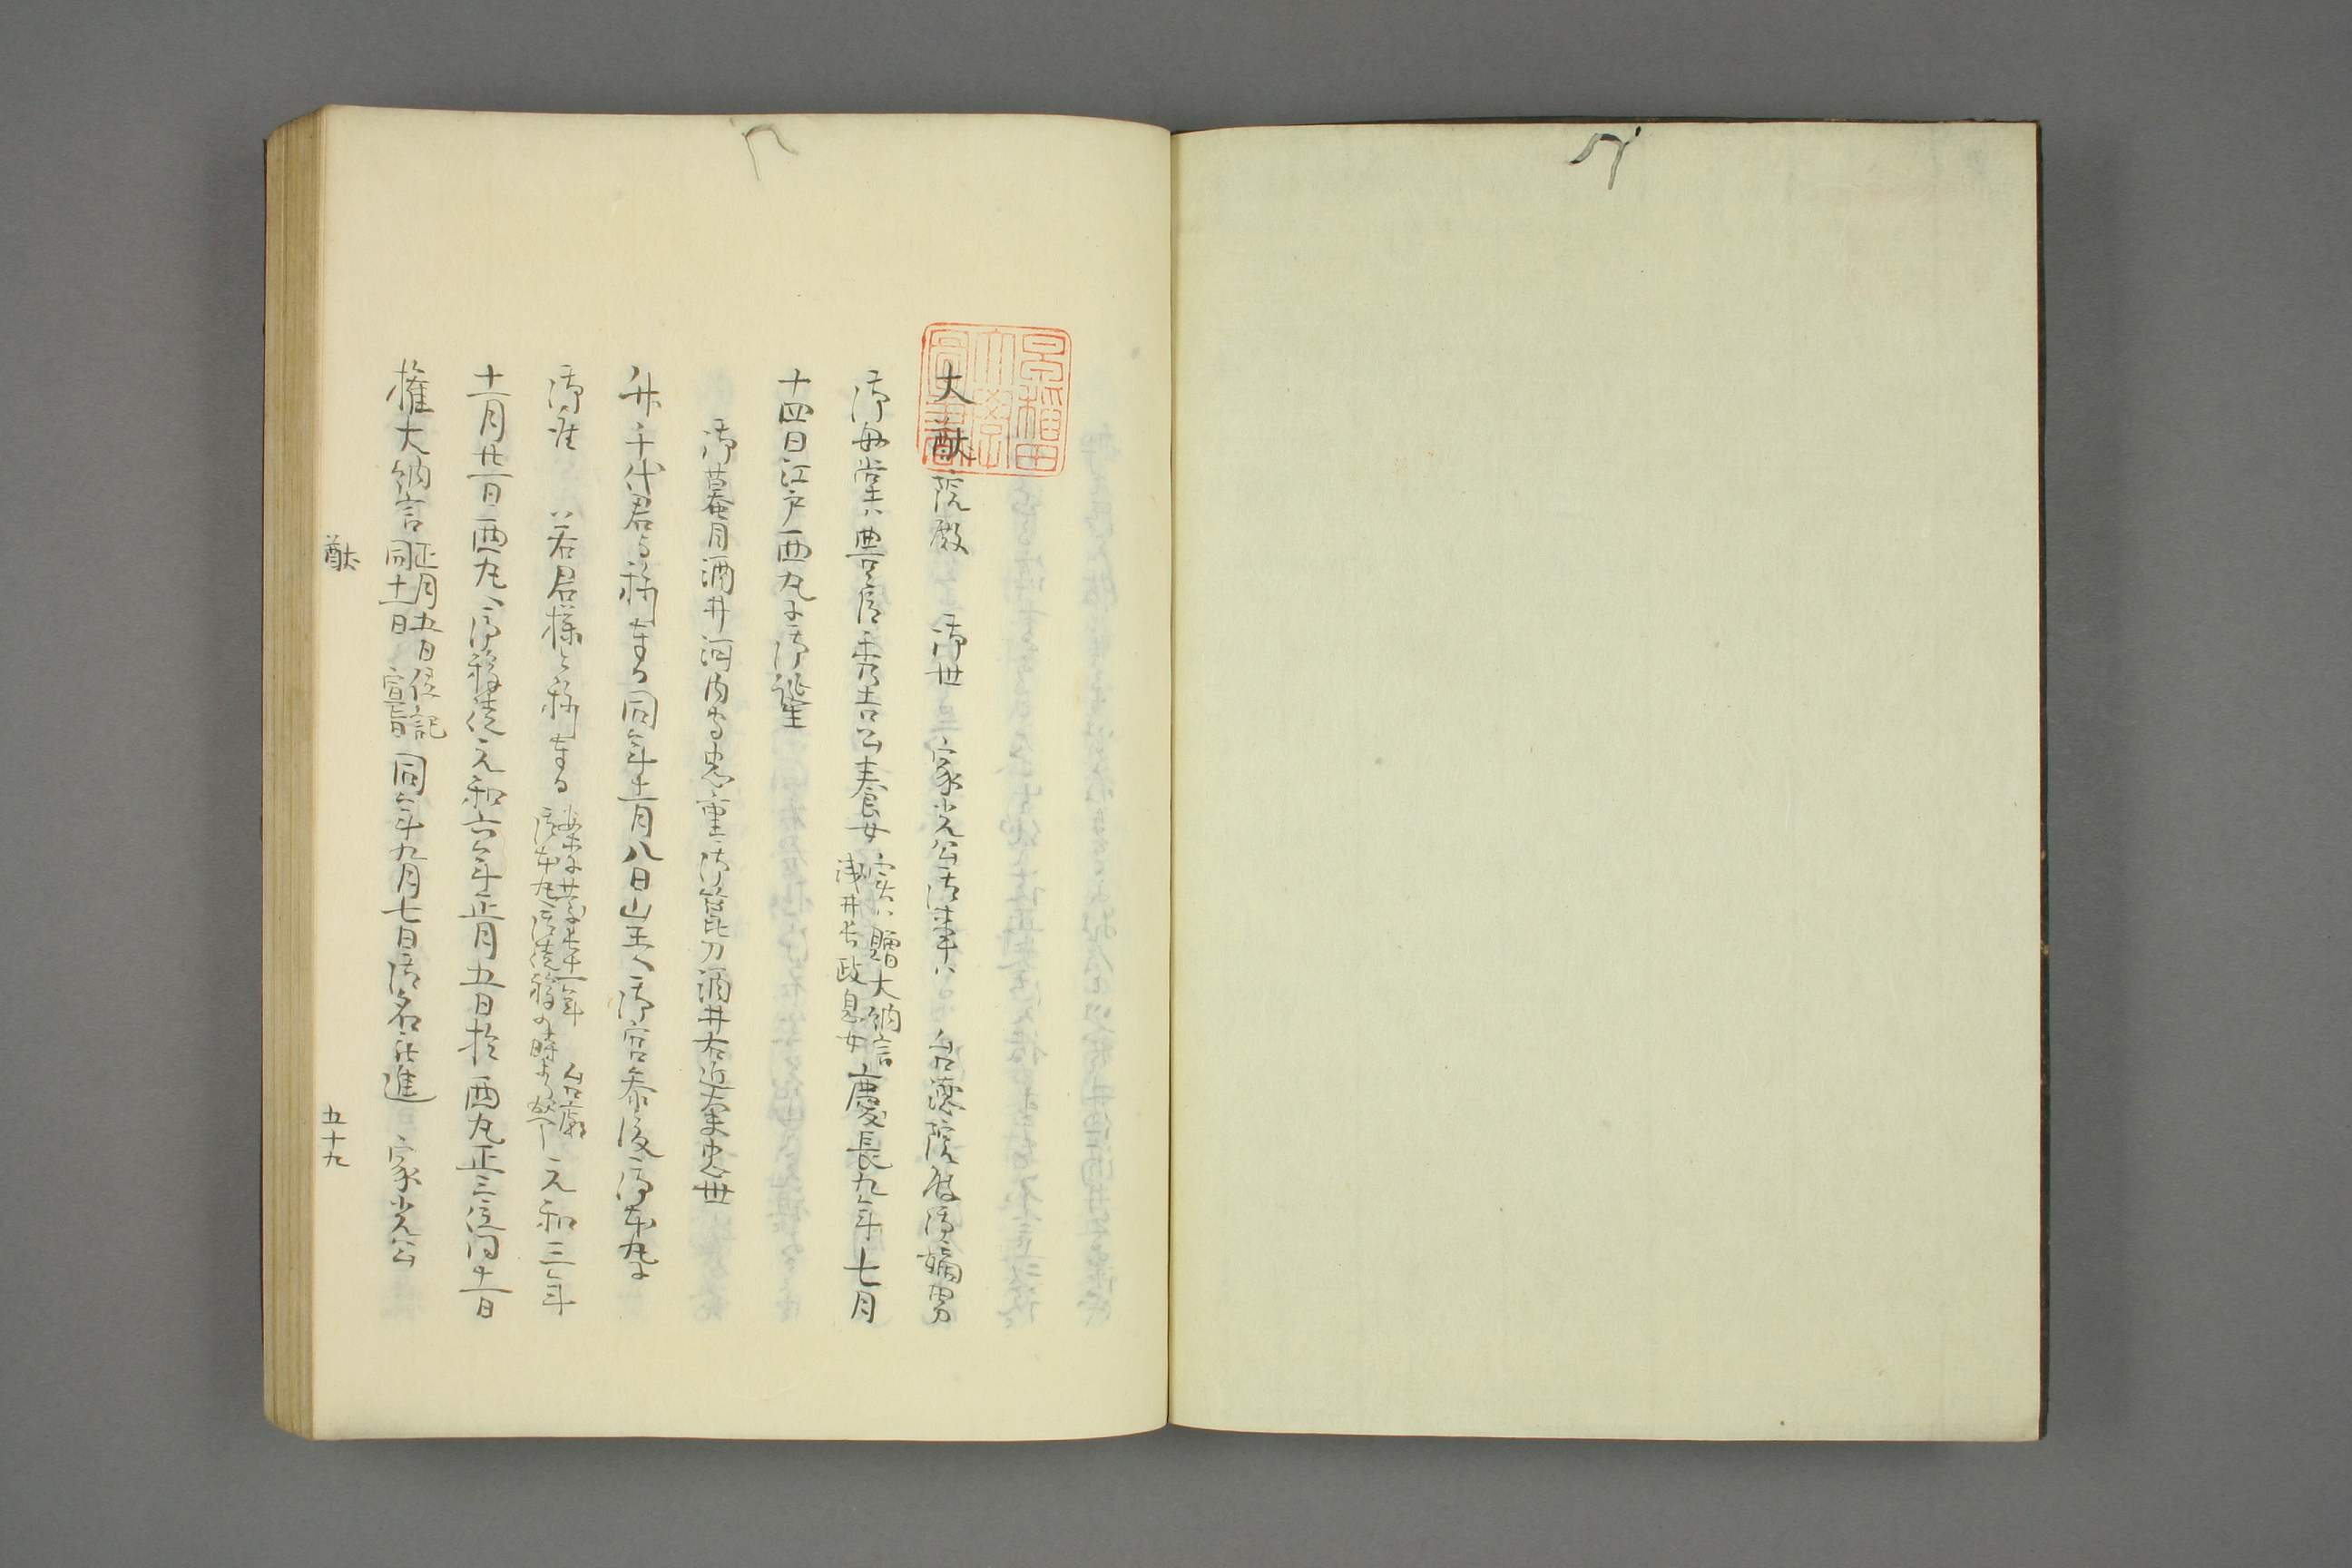 早稲田
大學
圖書
大猷院殿 御世 家光公御事ハ 台徳院殿御嫡男
御母堂ハ豊臣秀吉公養女 実ハ贈大納言
浅井長政息女 慶長九年七月
十四日江戸西丸に御誕生
御蟇目酒井河内守忠重御箆刀酒井右近大夫忠世
竹千代君与称する同年十一月八日山王へ御宮参後御本丸に
御 若君様と称する
台廟
御本丸へ御徙移の時より 元和三年
十一月廿一日西丸へ御移徙元和六年正月五日於 西丸正三位同十一日
権大納言 正月五日位記
同十一日宣旨 同年九月七日御名被進 家光公
猷
五十九